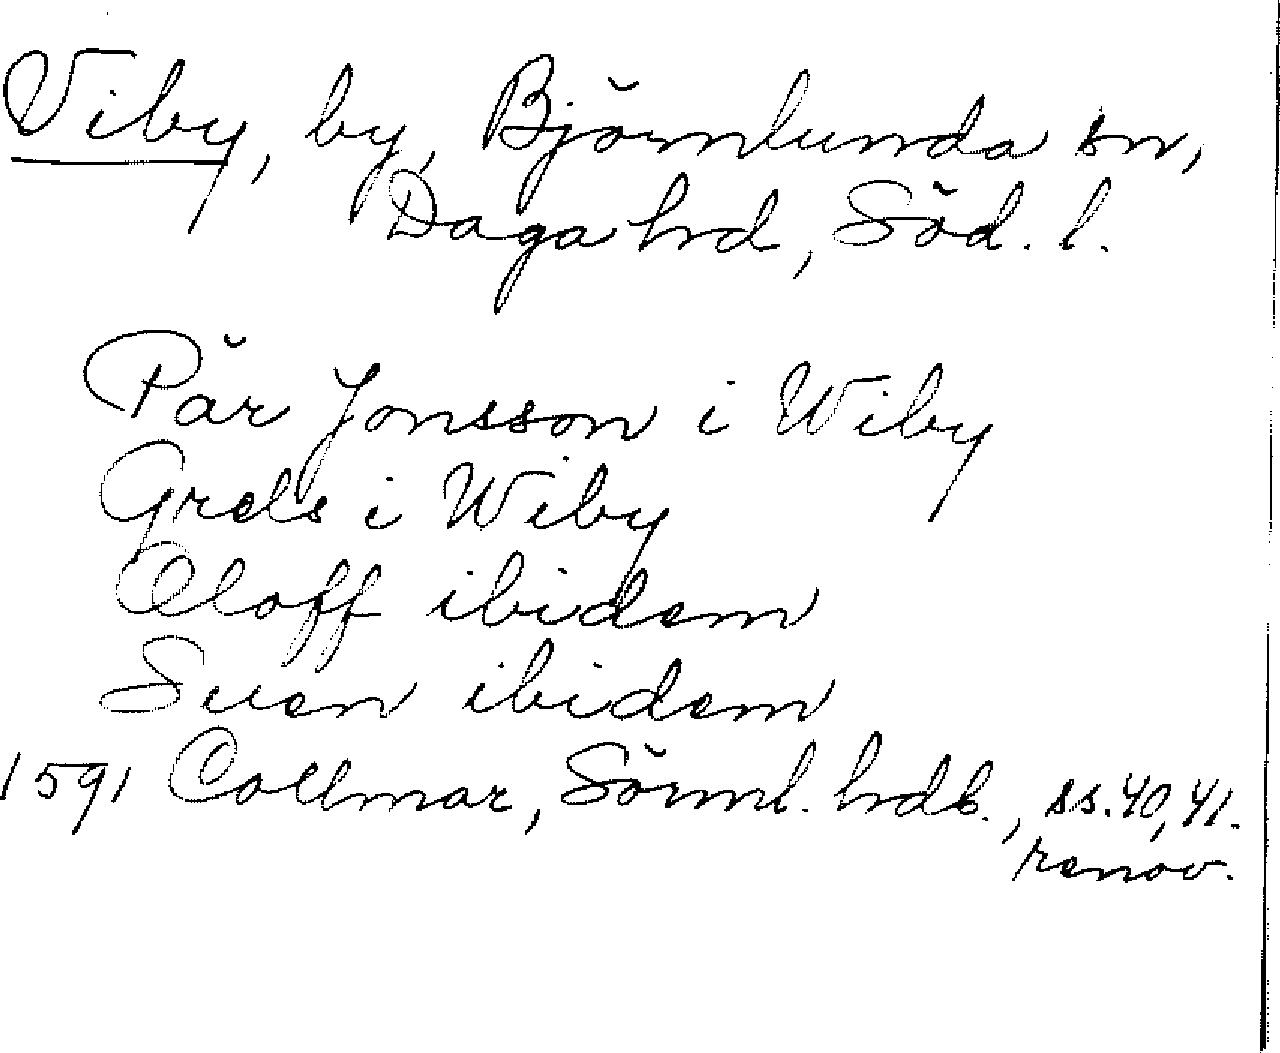 Viby, by, Björnlunda sn,
Daga hd, Söd. l.
Pär Jonsson i Wiby
Grels i Wiby
Oloff ibidem
Suen ibidem
1591 Collmar, Sörml. hdb., ss. 40, 41.
renov.